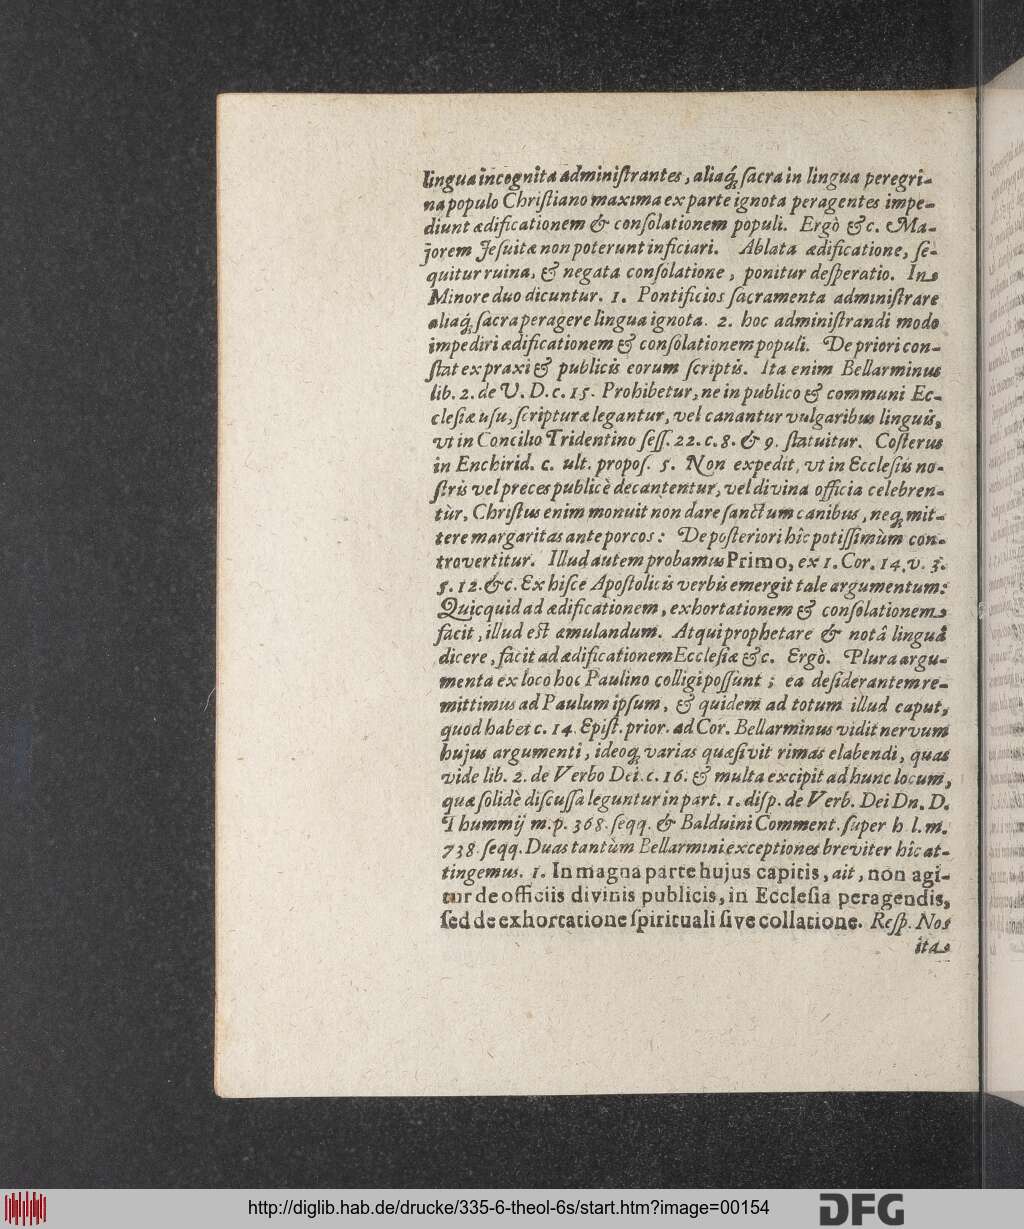 lingua incognita administrantes, aliaq́; sacra in lingua peregri-
na populo Christiano maxima ex parte ignota peragentes impe-
diunt ædificationem & consolationem populi. Ergò &c. Ma-
jorem Jesuitæ non poterunt inficiari. Ablata ædificatione, se-
quitur ruina, & negata consolatione, ponitur desperatio. In
Minore duo dicuntur. 1. Pontificios sacramenta administrare
aliaq́; sacra peragere lingua ignota. 2. hoc administrandi modo
impediri ædificationem & consolationem populi. De priori con-
stat ex praxi & publicis eorum scriptis. Ita enim Bellarminus
lib. 2. de V. D. c. 15. Prohibetur, ne in publico & communi Ec-
clesiæ usu, scripturæ legantur, vel canantur vulgaribus linguis,
vt in Concilio Tridentino sess. 22. c. 8. & 9. statuitur. Costerus
in Enchirid. c. ult. propos. 5. Non expedit, vt in Ecclesiis no-
stris vel preces publicè decantentur, vel divina officia celebren-
tùr, Christus enim monuit non dare sanctum canibus, neq; mit-
tere margaritas ante porcos: De posteriori hîc potissimùm con-
trovertitur. Illud autem probamus Primo, ex 1. Cor. 14. v. 3.
5. 12. &c. Ex hisce Apostolicis verbis emergit tale argumentum:
Quicquid ad ædificationem, exhortationem & consolationem
facit, illud est æmulandum. Atqui prophetare & notâ linguâ
dicere, facit ad ædificationem Ecclesiæ &c. Ergò. Plura argu-
menta ex loco hoc Paulino colligi possunt; ea desiderantem re-
mittimus ad Paulum ipsum, & quidem ad totum illud caput,
quod habet c. 14. Epist. prior. ad Cor. Bellarminus vidit nervum
hujus argumenti, ideoq; varias quæsivit rimas elabendi, quas
vide lib. 2. de Verbo Dei. c. 16. & multa excipit ad hunc locum,
quæ solidè discussa leguntur in part. 1. disp. de Verb. Dei Dn. D.
Thummij m. p. 368. seqq. & Balduini Comment. super h. l. m.
738. seqq. Duas tantùm Bellarmini exceptiones breviter hîc at-
tingemus. 1. In magna parte hujus capitis, ait, non agi-
tur de officiis divinis publicis, in Ecclesia peragendis,
sed de exhortatione spirituali sive collatione. Resp. Nos
ita
http://diglib.hab.de/drucke/335-6-theol-6s/start.htm?image=00154
DFG